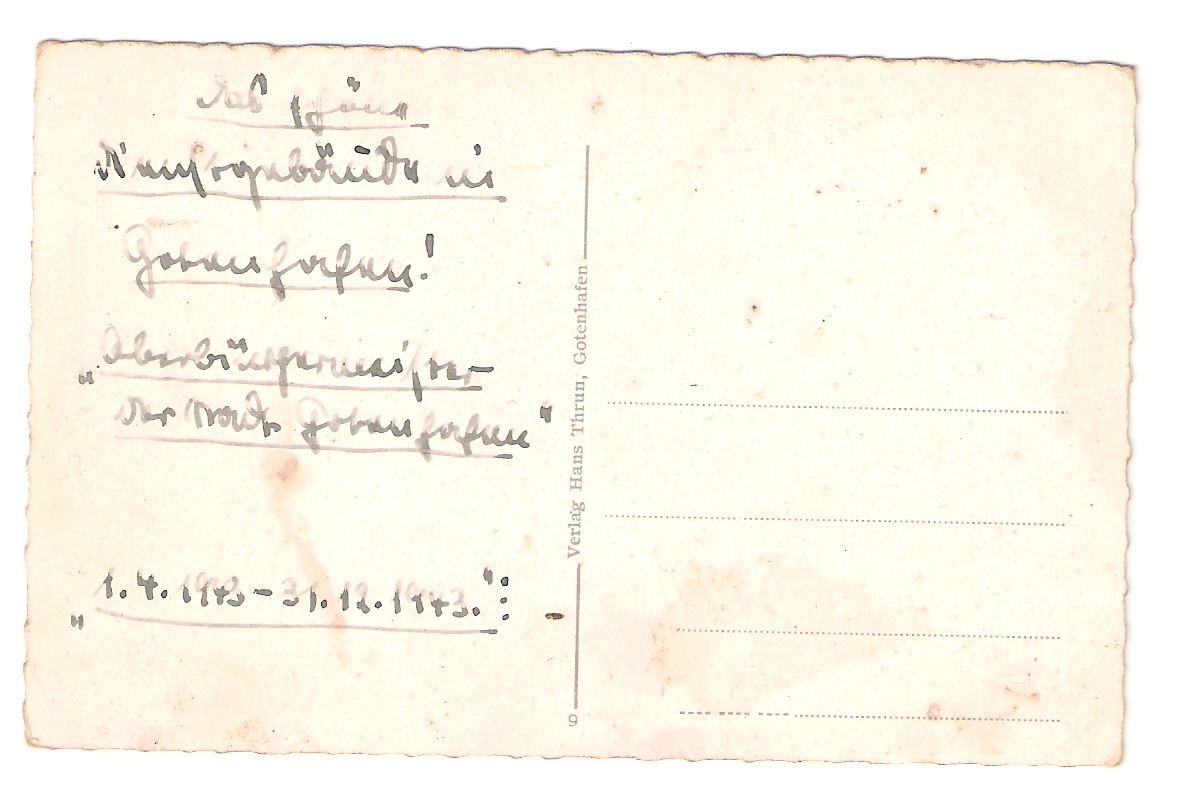 Das schöne
Dienstgebäude in
Gotenhafen!
„Oberbürgermeister
der Stadt Gotenhafen“
„1.4.1943 – 31.12.1943.“:
Verlag Hans Thrun, Gotenhafen
9